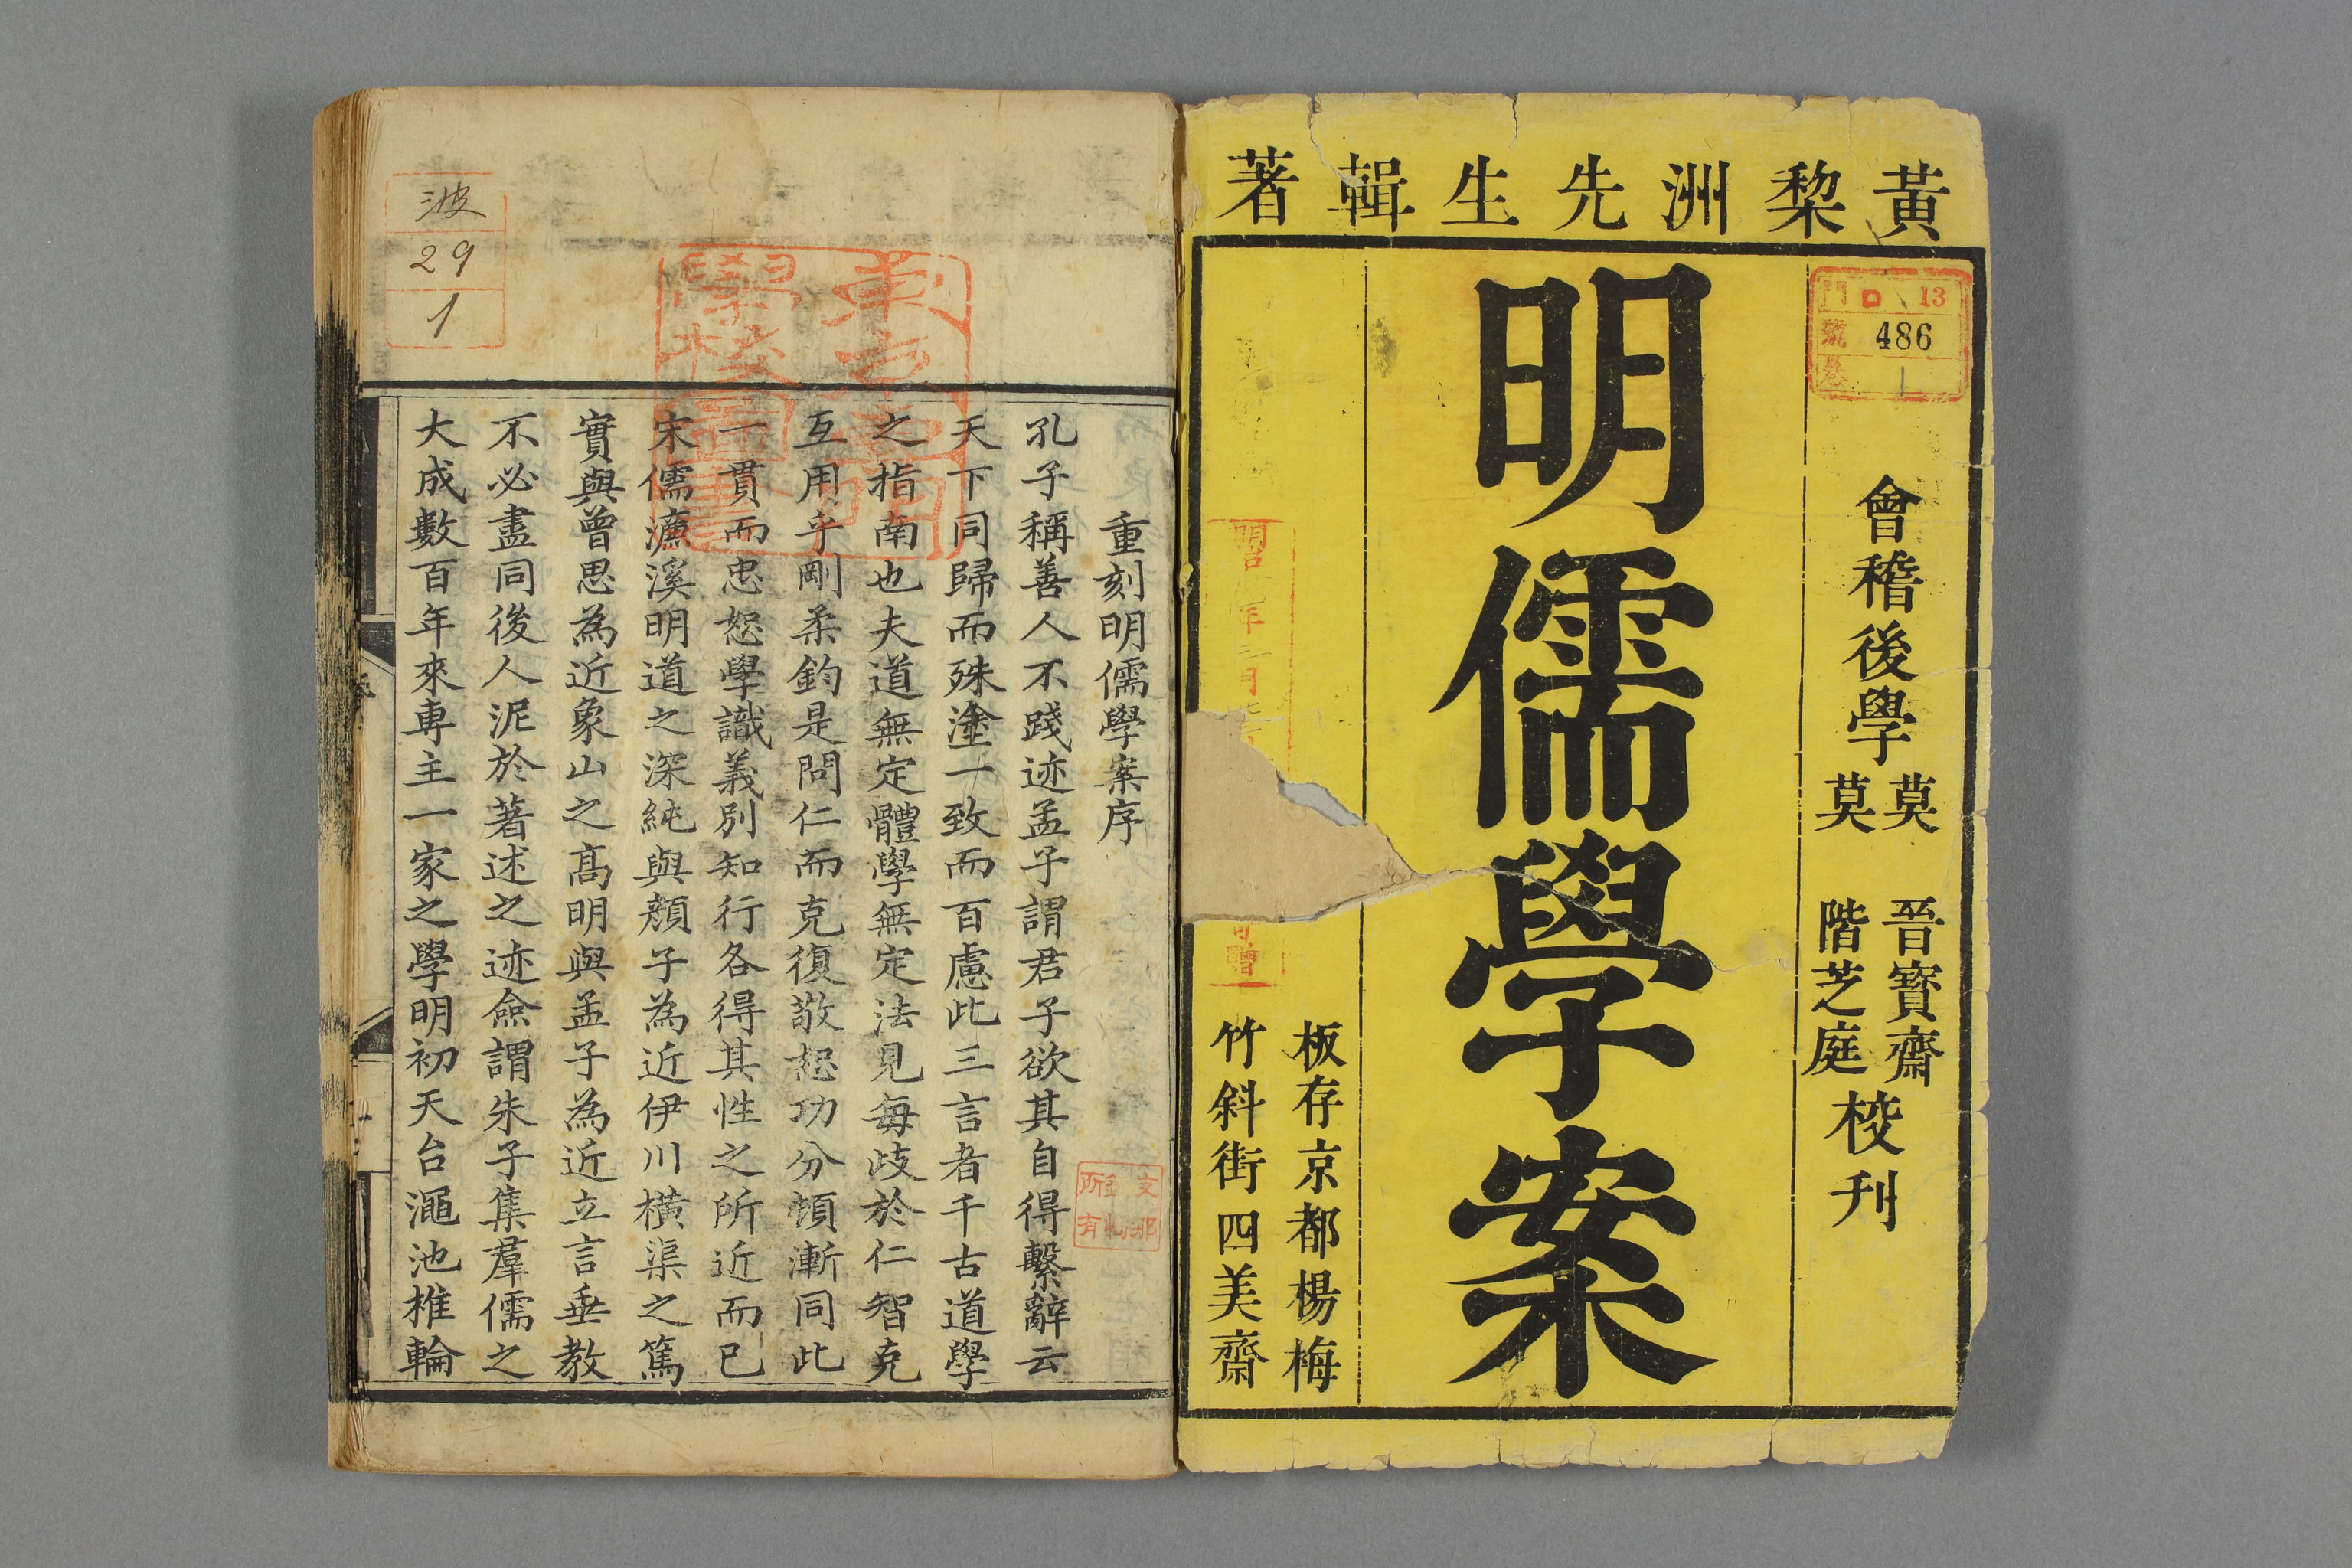 黃棃洲先生輯著
門 口 13
號 486
卷 1
會稽後學
莫晉寶齋
莫階芝庭
校刊
明儒學案
板存京都楊梅
竹斜街四美齋
年三月
贈
重刻明儒學案序
孔子稱善人不踐迹孟子謂君子欲其自得繫辭云
天下同歸而殊塗一致而百慮此三言者千古道學
之指南也夫道無定體學無定法見每歧於仁智克
互用乎剛柔鈞是問仁而克復敬恕功分頓漸同此
一貫而忠恕學識義別知行各得其性之所近而已
宋儒濂溪明道之深純與顏子為近伊川橫渠之篤
實與曾思為近象山之高明與孟子為近立言垂教
不必盡同後人泥於著述之迹僉謂朱子集羣儒之
大成數百年來專主一家之學明初天台澠池椎輪
波
29
1
學校圖書
所有